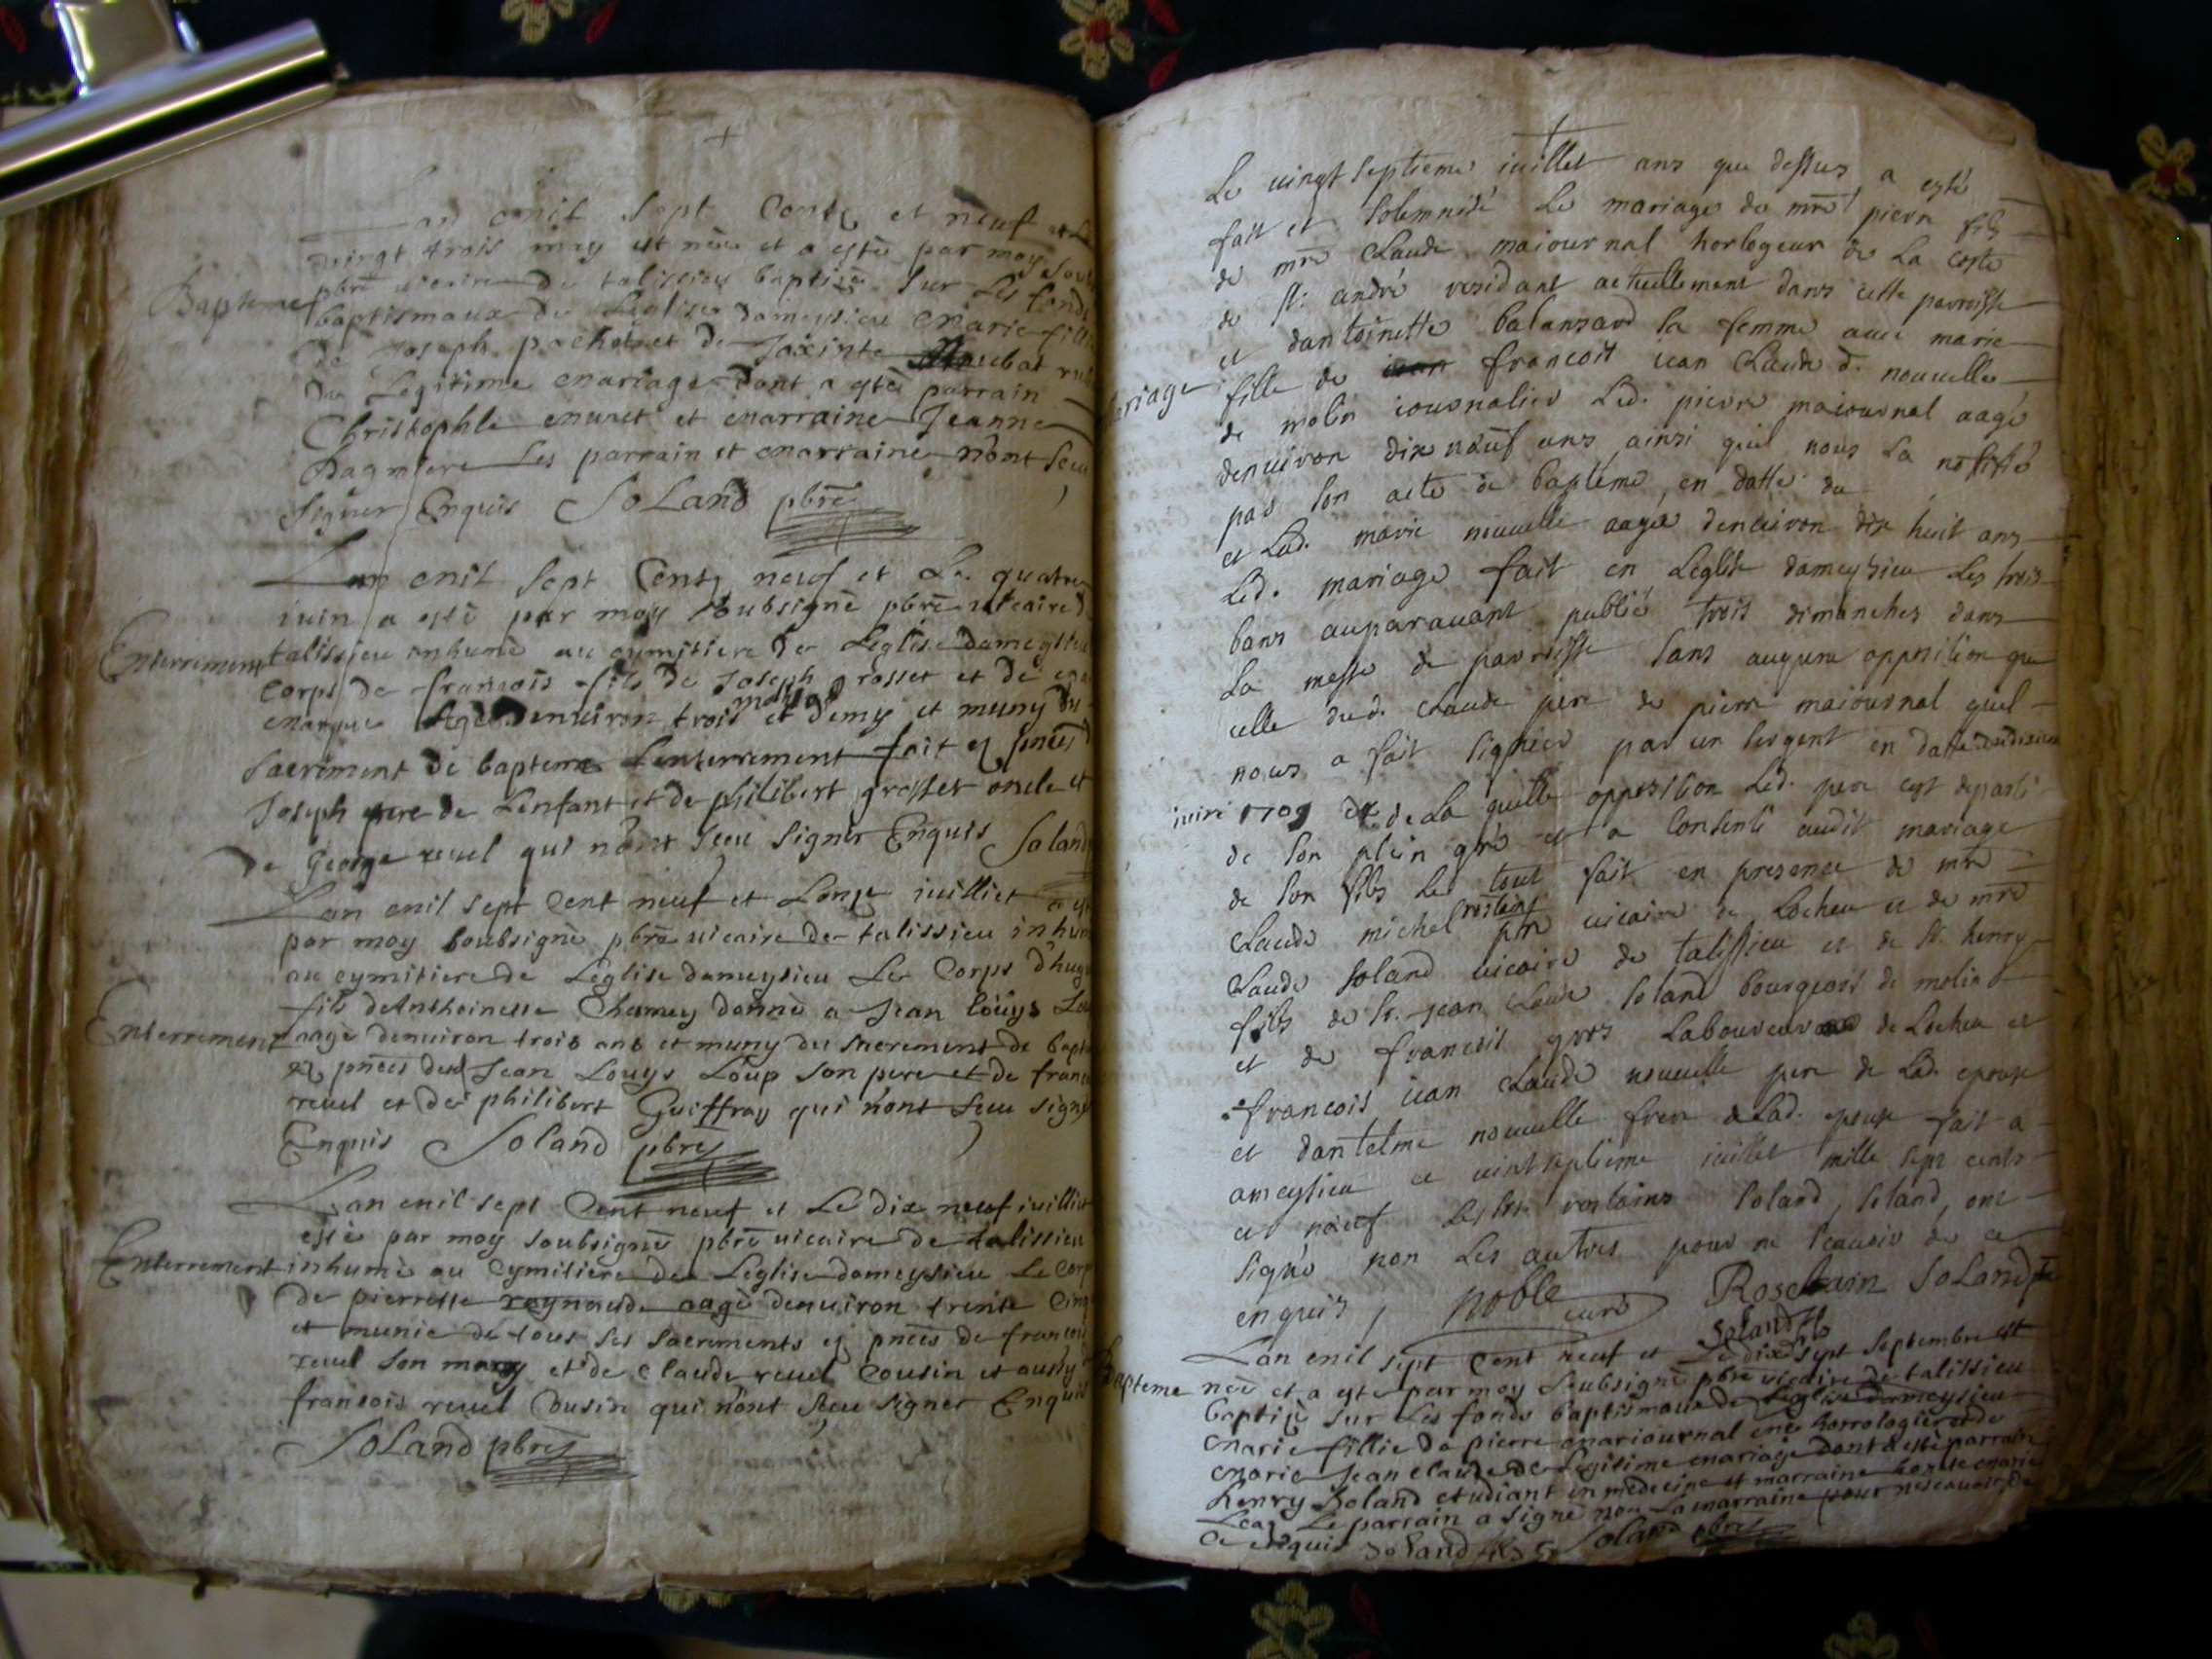 Lan mil Sept Cents et neuf et Le
vingt trois may est née et a esté par moy Soub
pbrē vicaire de talissieu baptisé Sur Les fonds
Bapteme baptismaux de Léglise dameysieu Marie fille
de Joseph pochet et de Jacinte
du Legitime mariage dont a esté parrain
Christophle et marraine Jeanne
Les parrain et marraine nont Sceu
Signer Enquis SoLand pbrē
Lan mil Sept Cents neuf et Le quatre
iuin a esté par moy Soubsigné pbrē vicaire d
Enterrement talissieu inhumé au cymitiere de Leglise dameysieu
corps de francois fils de Joseph grosset et de
Agé denuiron trois et demy et muny du
Sacrement de bapteme Lenterrement fait
Joseph pere de Lenfant et de philibert grosset oncle et
De George reuel qui nont Sceu Signer Enquis Soland
Lan mil Sept Cent neuf et Lonze iuilliet a es
par moy Soubsigné pbrē vicaire de talissieu inhum
au cymitiere de Léglise dameysieu Le Corps dhugu
fils deAnthoinette Chamey donné a Jean Loüys Lou
Enterrement aagé denuiron trois ans et muny du Sacrement de bapte
pn̄ces dud Jean Louys Loup Son pere et de franc
reuel et de philibert Guiffray qui nont Sceu signe
Enquis Soland pbrē
Lan mil sept Cent neuf et Le dix neuf iuilliet
esté par moy Soubsigné pbrē vicaire de talissieu
Enterrement inhumé au Cymitiere de Leglise dameysieu Le Corp
de pierrette reynaude aagé denuiron trente Cinq
et munie de tous Ses Sacrements pn̄ces de francois
reuel Son mary et de Claude reuel Cousin et aussy
francois reuel Cousin qui nont Sceu signer Enquis
SoLand pbrē
Le vingt Septieme iuillet ans que dessus a esté
fait et Solemnisé Le mariage de mrē pierre fils
de mrē Claude maiournal horlogeur de La coste
de St. andré residant actuellement dans cette parroisse
et dantoinette balansard Sa femme auec marie
Mariage fille de francois iean Claude d. nouuelle
de molin iournalier Led. pierre maiournal aagé
denuiron dix neuf ans ainsi quil nous La notifié
pas Son acte de baptéme, en datte du
et Lad. marie nouuelle aagée denuiron dix huit ans
Led. mariage fait en Léglise dameysieu Les trois
bans auparauant publié trois dimanches dans
La messe de parroisse Sans aucune opposition que
celle dud. Claude pere de pierre maiournal quil
nous a fait Signifier par un Sergent en datte
iuin 1709 de La quelle opposition Led. pere est departi
de Son plein gré et a Consenti audit mariage
de Son fils Le tout fait en presence de mrē
Claude michel rostaing prē vicaire de Locheu et de mrē
Claude Soland vicaire de talissieu et de Sr. henry
fils de Sr. jean Claude Soland bourgeois de molin
et de francois gros Laboureur de Locheu et
francois iean Claude nouuelle pere de Lad. epouse
et dantelme nouuelle frere de Lad. epouse fait a
ameysieu ce vint septieme iuillet mille sept cents
et neuf Soland, Soland, ont
Signé non Les autres pour ne Scauoir de ce
enquis, noble curé Rostain SoLand
Soland
Lan mil sept Cent neuf et Le dix sept Septembre est
Bapteme née et a esté par moy Soubsigné pbrē vicaire de talissieu
baptizé Sur Les fonds baptismaux de Leglise dameysieu
marie fillie de pierre mariournal mrē horrologier et de
marie Jean Claude de Legitime mariage dont a esté parrain
henry Soland etudiant en medecine et marraine marie
Le parrain a signé non La marraine pour ne scauoir de
ce enquis Soland Soland pbrē